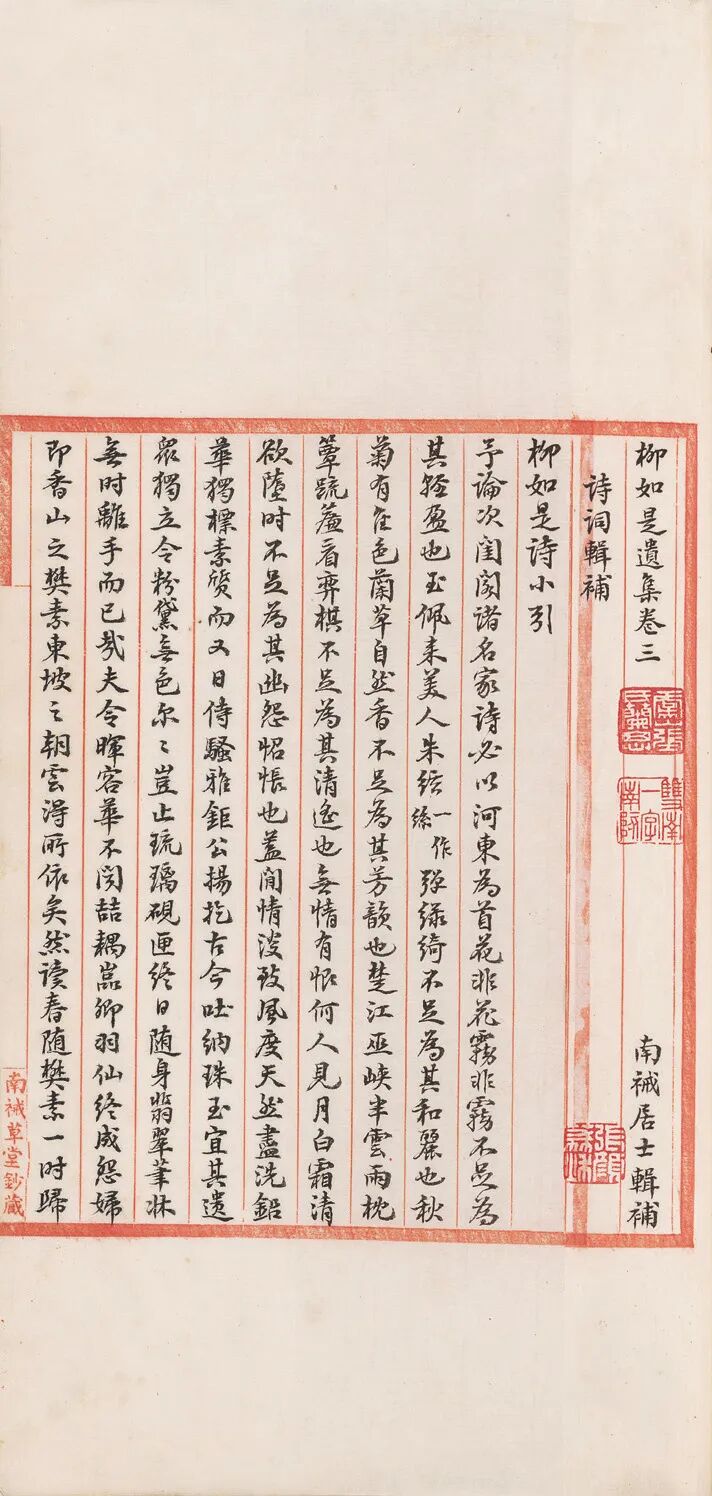 柳如是遺集卷三
南裓居士輯補
詩词輯補
柳如是诗小引
予论次闺阁诸名家诗必以河東為首花非花霧非霧不足為
其輕盈也玉佩来美人朱絃一作絲弹绿绮不足為其和麗也秋
菊有佳色蘭草自然香不足為其芳韻也楚江巫峡半雲雨枕
簟疏簾看弈棋不足為其清遙也無情有恨何人見月白霜清
欲墮时不足為其幽怨惆悵也蓋閒情淡致風度天然盡洗鉛
華獨標素质而又日侍騷雅鉅公揚扢古今吐纳珠玉宜其遗
眾獨立令粉黛無色尔尔豈止琉璃硯匣终日随身翡翠筆牀
無时離手而已哉夫令暉容華不闵喆耦嵩卿羽仙终成怨婦
即香山之樊素東坡之朝雲得所依矣然读春随樊素一时歸
雙南一字南師
南裓草堂鈔藏